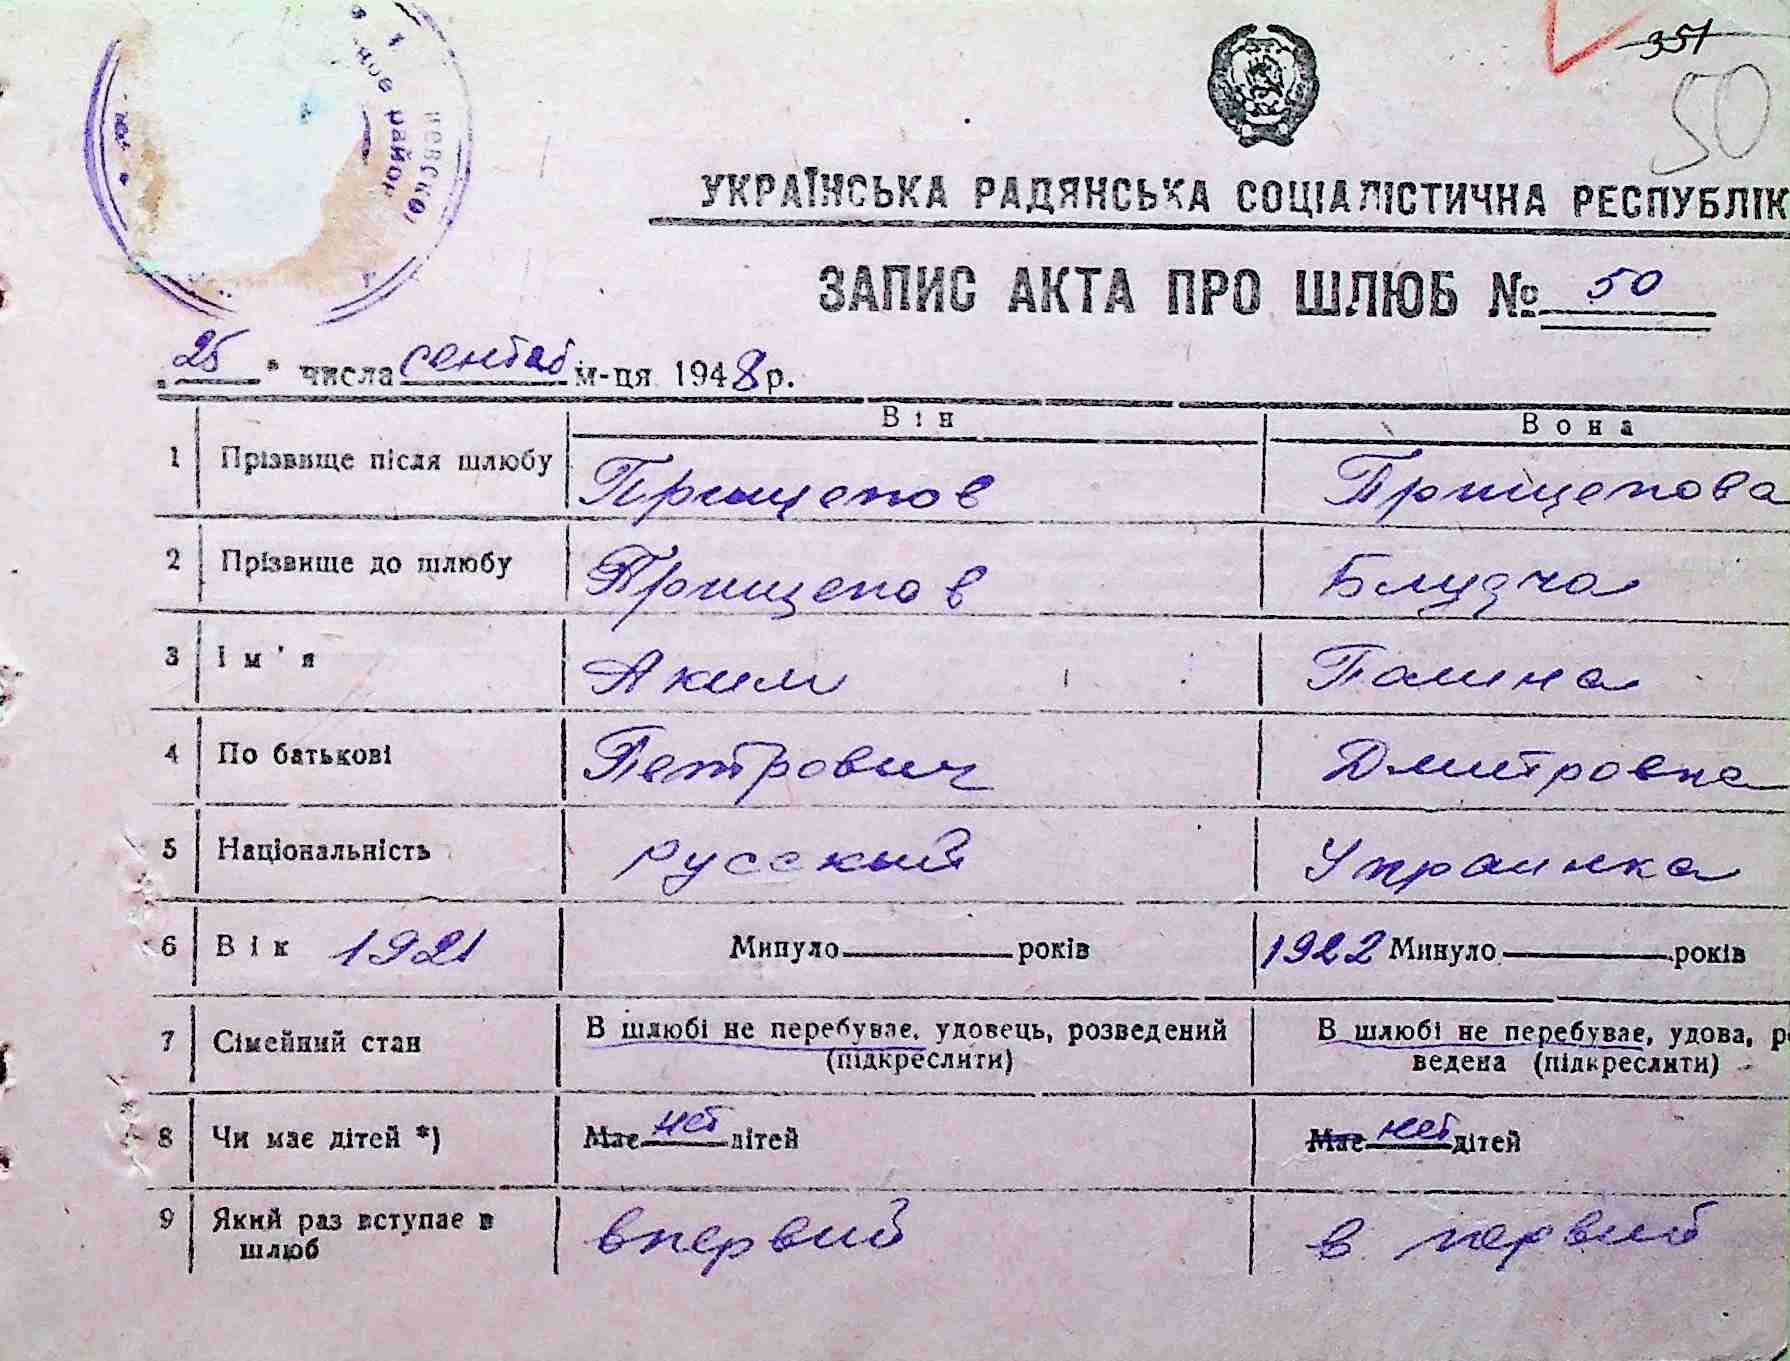 351
50
УКРАЇНСЬКА РАДЯНСЬКА СОЦІАЛІСТИЧНА РЕСПУБЛІК
ЗАПИС АКТА ПРО ШЛЮБ № 50
„25" числа сентяб м-ця 1948 р.
Він Вона
1 Прізвище після шлюбу Прищепов Прищепова
2 Прізвище до шлюбу Прищепов
3 Ім'я Аким Полина
4 По батькові Петрович Дмитровна
5 Національність русский Украинка
6 Вік 1921 Минуло років 1922 Минуло років
7 Сімейний стан В шлюбі не перебуває, удовець, розведений (підкреслити) В шлюбі не перебуває, удова, роз
ведена (підкреслити)
8 Чи має дітей *) Має нет дітей Має нет дітей
9 Який раз вступає в шлюб впервий в первий